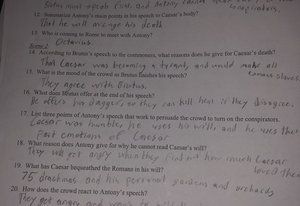 Brutus must speak first, and Antony cannot
conspirators.
12. Summarize Antony's main points in his speech to Caesar's body?
That he will avenge his death
13. Who is coming to Rome to meet with Antony?
Octavius.
Scene 2
14. According to Brutus's speech to the commoners, what reasons does he give for Caesar's death?
That Caesar was becoming a tyrant, and would make all
romans slaves
15. What is the mood of the crowd as Brutus finishes his speech?
They agree with Brutus.
16. What does Brutus offer at the end of his speech?
He offers his dagger, so they can kill him if they disagree.
17. List three points of Antony's speech that work to persuade the crowd to turn on the conspirators.
Caesar was humble, he uses his will, and he uses the
Past emotions of Caesar
18. What reason does Antony give for why he cannot read Caesar's will?
They will get angry when they find out how much Caesar
loved them
19. What has Caesar bequeathed the Romans in his will?
75 drachmas and his personal gardens and orchards
20. How does the crowd react to Antony's speech?
They got angry and